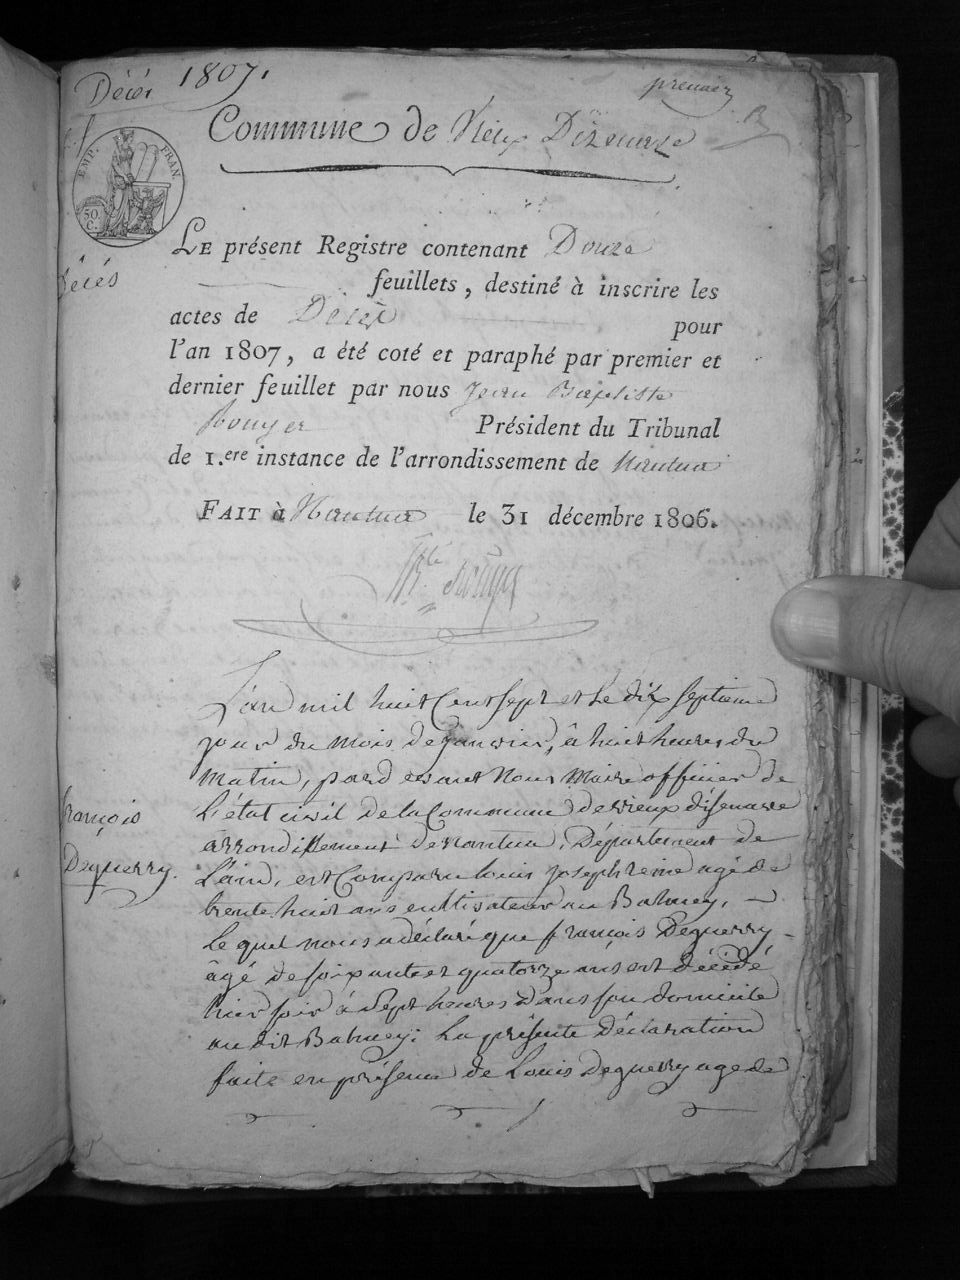 Décès 1807.
premier
Commune de Vieux Dizenave
EMP. FRAN.
50.
C.
LE présent Registre contenant Douze
Décés
feuillets, destiné à inscrire les
actes de Décès pour
l'an 1807, a été coté et paraphé par premier et
dernier feuillet par nous Jean Baptiste
Rouyer Président du Tribunal
de 1.ere instance de l'arrondissement de Nantua
FAIT à Nantua le 31 décembre 1806.
Bte Rouyer
L'an mil huit Cent sept et le dix septieme
jour du mois de Janvier, à huit heures du
matin, pard evant Nous Maire officier de
L'état civil de la Commune de vieux disenave
arrondissement de nantua, Département de
L'ain, est Comparu louis joseph reme agé de
trente huit ans cultivateur au Balmey,
Le quel nous a déclaré que françois Deguerry
âgé de soixante et quatorze ans est décédé
hier soir à sept heures dans son domicile
au dit Balmey; La présente déclaration
faite en présence de Louis Deguerry age de
françois
Deguerry.